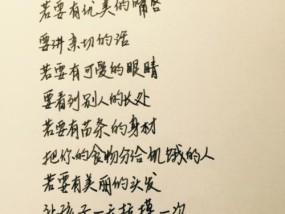 若要有优美的嘴唇
要讲亲切的话
若要有可爱的眼睛
要看到别人的好处
若要有苗条的身材
把你的食物分给饥饿的人
若要有美丽的头发
让孩子一天抚摸一次